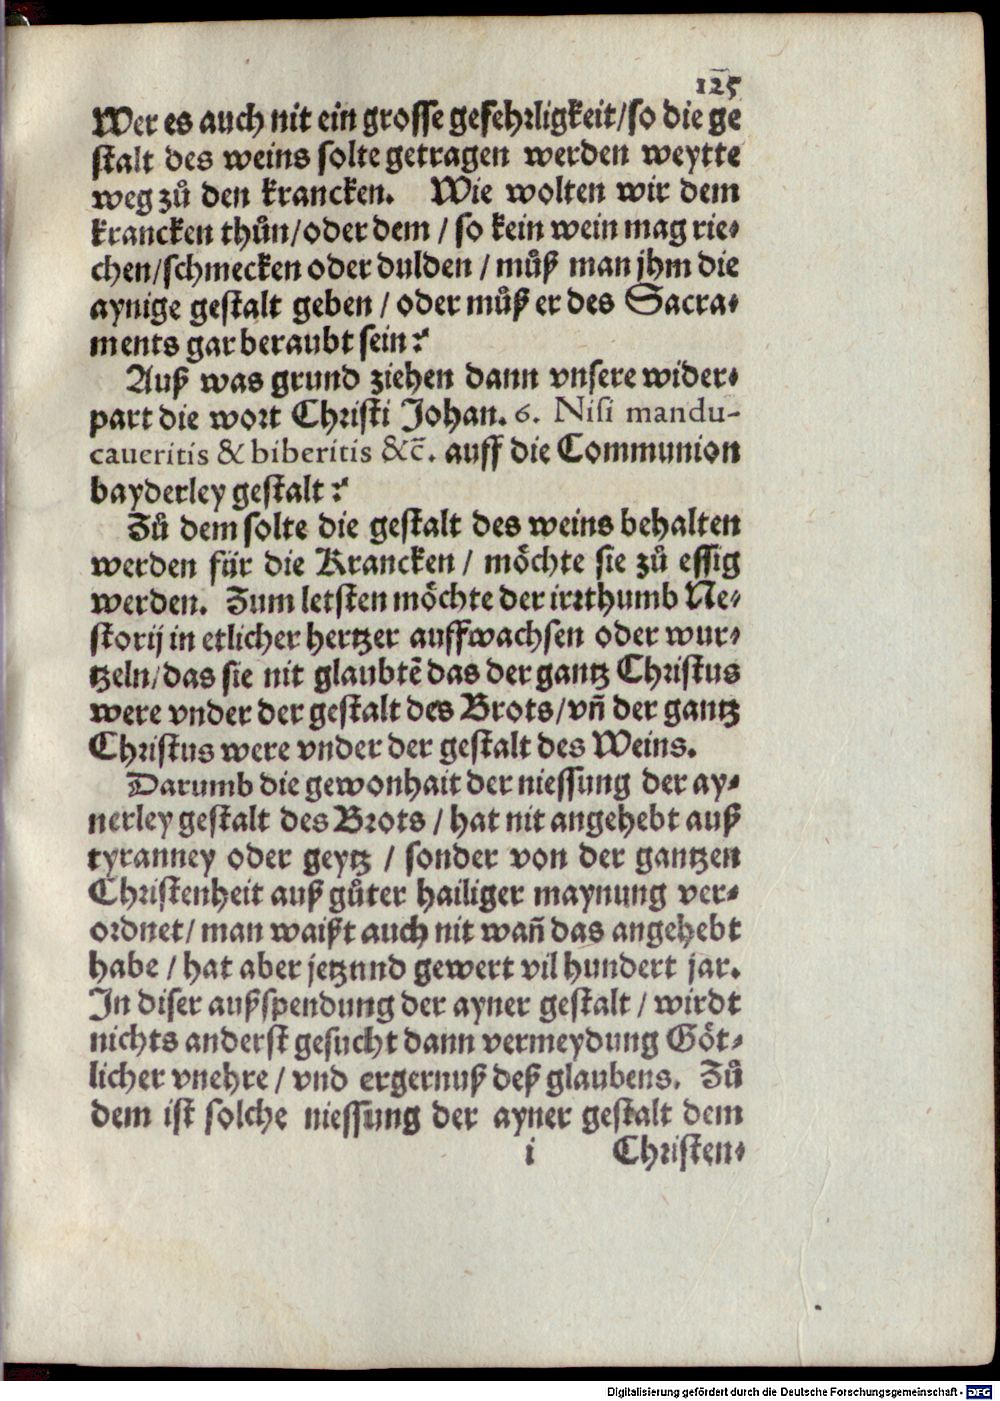 125
Wer es auch nit ein grosse gefehrligkeit/so die ge
stalt des weins solte getragen werden weytte
weg zů den krancken. Wie wolten wir dem
krancken thůn/oder dem / so kein wein mag rie⸗
chen/schmecken oder dulden / můß man jhm die
aynige gestalt geben / oder můß er des Sacra⸗
ments gar beraubt sein?
Auß was grund ziehen dann vnsere wider⸗
part die wort Christi Johan. 6. Nisi mandu-
caueritis & biberitis &c̃. auff die Communion
bayderley gestalt?
Zů dem solte die gestalt des weins behalten
werden für die Krancken / möchte sie zů essig
werden. Zum letsten möchte der irrthumb Ne⸗
storij in etlicher hertzer auffwachsen oder wur⸗
tzeln/das sie nit glaubtẽ das der gantz Christus
were vnder der gestalt des Brots/vñ der gantz
Christus were vnder der gestalt des Weins.
Darumb die gewonhait der niessung der ay⸗
nerley gestalt des Brots / hat nit angehebt auß
tyranney oder geytz / sonder von der gantzen
Christenheit auß gůter hailiger maynung ver⸗
ordnet/ man waißt auch nit wañ das angehebt
habe / hat aber jetzund gewert vil hundert jar.
In diser außspendung der ayner gestalt / wirdt
nichts anderst gesucht dann vermeydung Göt⸗
licher vnehre / vnd ergernuß deß glaubens. Zů
dem ist solche niessung der ayner gestalt dem
i Christen⸗
Digitalisierung gefördert durch die Deutsche Forschungsgemeinschaft - DFG